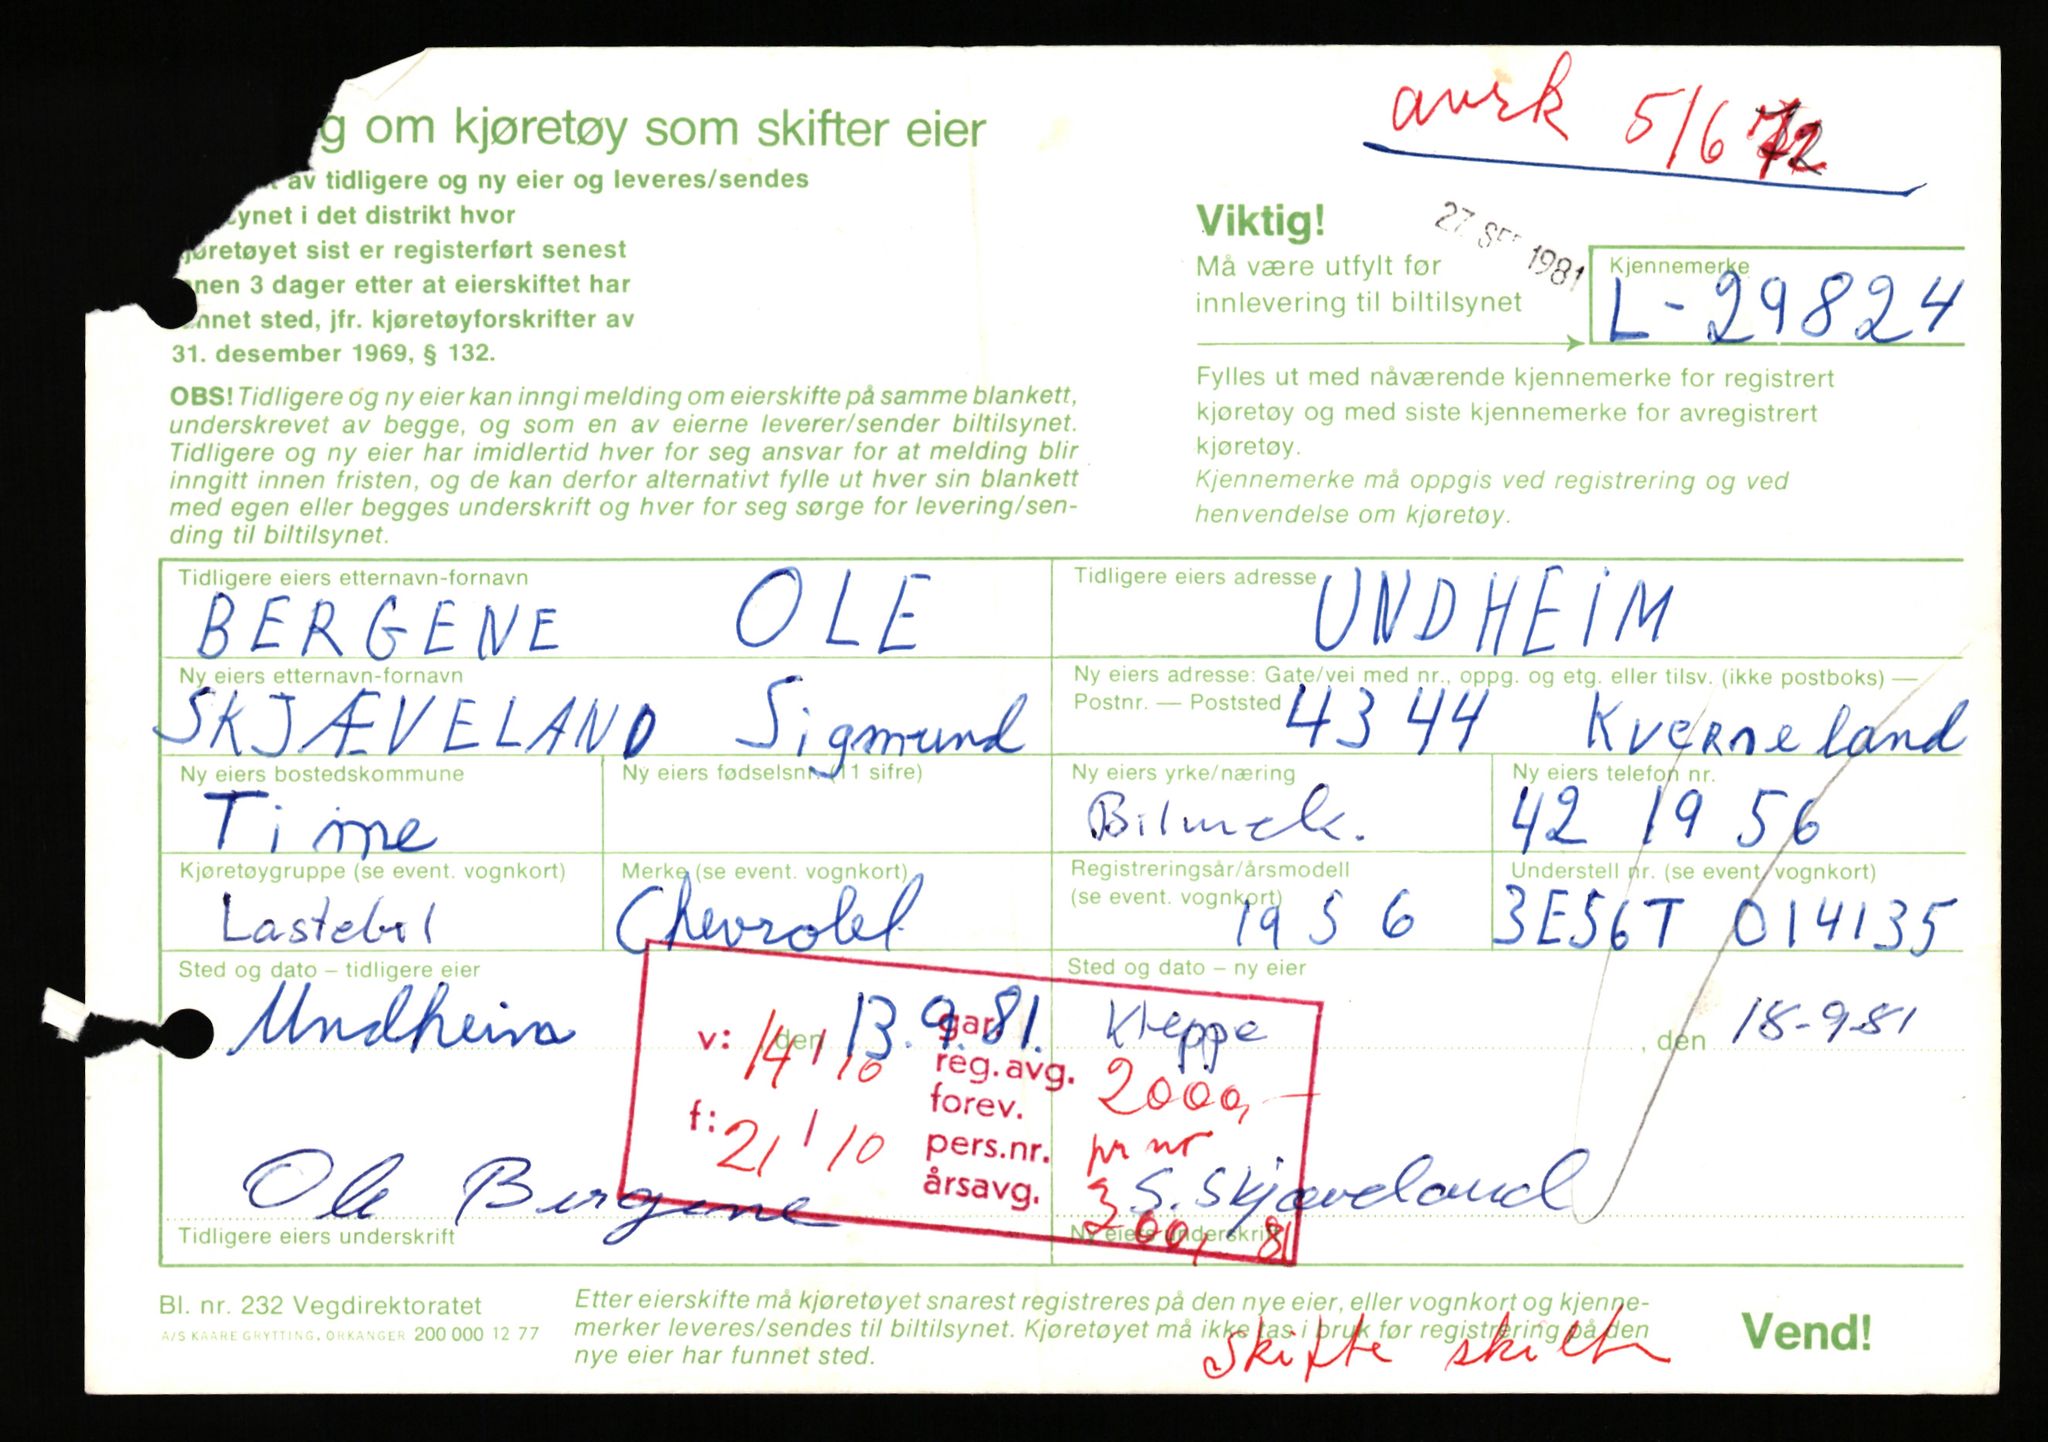 avrk 5/6 72
g om kjøretøy som skifter eier
av tidligere og ny eier og leveres/sendes
synet i det distrikt hvor
kjøretøyet sist er registerført senest
innen 3 dager etter at eierskiftet har
funnet sted, jfr. kjøretøyforskrifter av
31. desember 1969, § 132.
OBS! Tidligere og ny eier kan inngi melding om eierskifte på samme blankett,
underskrevet av begge, og som en av eierne leverer/sender biltilsynet.
Tidligere og ny eier har imidlertid hver for seg ansvar for at melding blir
inngitt innen fristen, og de kan derfor alternativt fylle ut hver sin blankett
med egen eller begges underskrift og hver for seg sørge for levering/sen-
ding til biltilsynet.
Viktig!
27 SEP 1981
Må være utfylt før
innlevering til biltilsynet
Kjennemerke
L-29824
Fylles ut med nåværende kjennemerke for registrert
kjøretøy og med siste kjennemerke for avregistrert
kjøretøy.
Kjennemerke må oppgis ved registrering og ved
henvendelse om kjøretøy.
Tidligere eiers etternavn-fornavn
BERGENE OLE
Tidligere eiers adresse
UNDHEIM
Ny eiers etternavn-fornavn
SKJÆVELAND Sigmund
Ny eiers adresse: Gate/vei med nr., oppg. og etg. eller tilsv. (ikke postboks) —
Postnr. — Poststed
4344 Kverneland
Ny eiers bostedskommune
Time
Ny eiers fødselsnr. (11 sifre)
Ny eiers yrke/næring
Bilmek.
Ny eiers telefon nr.
42 19 56
Kjøretøygruppe (se event. vognkort)
Lastebil
Merke (se event. vognkort)
Chevrolet
Registreringsår/årsmodell
(se event. vognkort)
1956
Understell nr. (se event. vognkort)
3E56T 014135
Sted og dato – tidligere eier
Undheim den 13.9.81.
Sted og dato – ny eier
Kleppe , den 18-9-81
v: 14/10 gar.
reg.avg. 2000,-
forev.
f: 21/10 pers.nr. pr nr
årsavg. 200, 81
Ole Bergene
Tidligere eiers underskrift
S. Skjæveland
Ny eiers underskrift
Bl. nr. 232 Vegdirektoratet
A/S KAARE GRYTTING, ORKANGER 200 000 12 77
Etter eierskifte må kjøretøyet snarest registreres på den nye eier, eller vognkort og kjenne-
merker leveres/sendes til biltilsynet. Kjøretøyet må ikke tas i bruk før registrering på den
nye eier har funnet sted.
Skifte skilt
Vend!